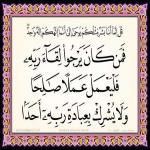 قُلْ إِنَّمَا أَنَا۠ بَشَرٌ مِّثْلُكُمْ يُوحَىٰ إِلَيَّ أَنَّمَا إِلَٰهُكُمْ إِلَٰهٌ وَاحِدٌ
فَمَن كَانَ يَرْجُوا۟ لِقَآءَ رَبِّهِۦ
فَلْيَعْمَلْ عَمَلًا صَٰلِحًا
وَلَا يُشْرِكْ بِعِبَادَةِ رَبِّهِۦٓ أَحَدًۢا